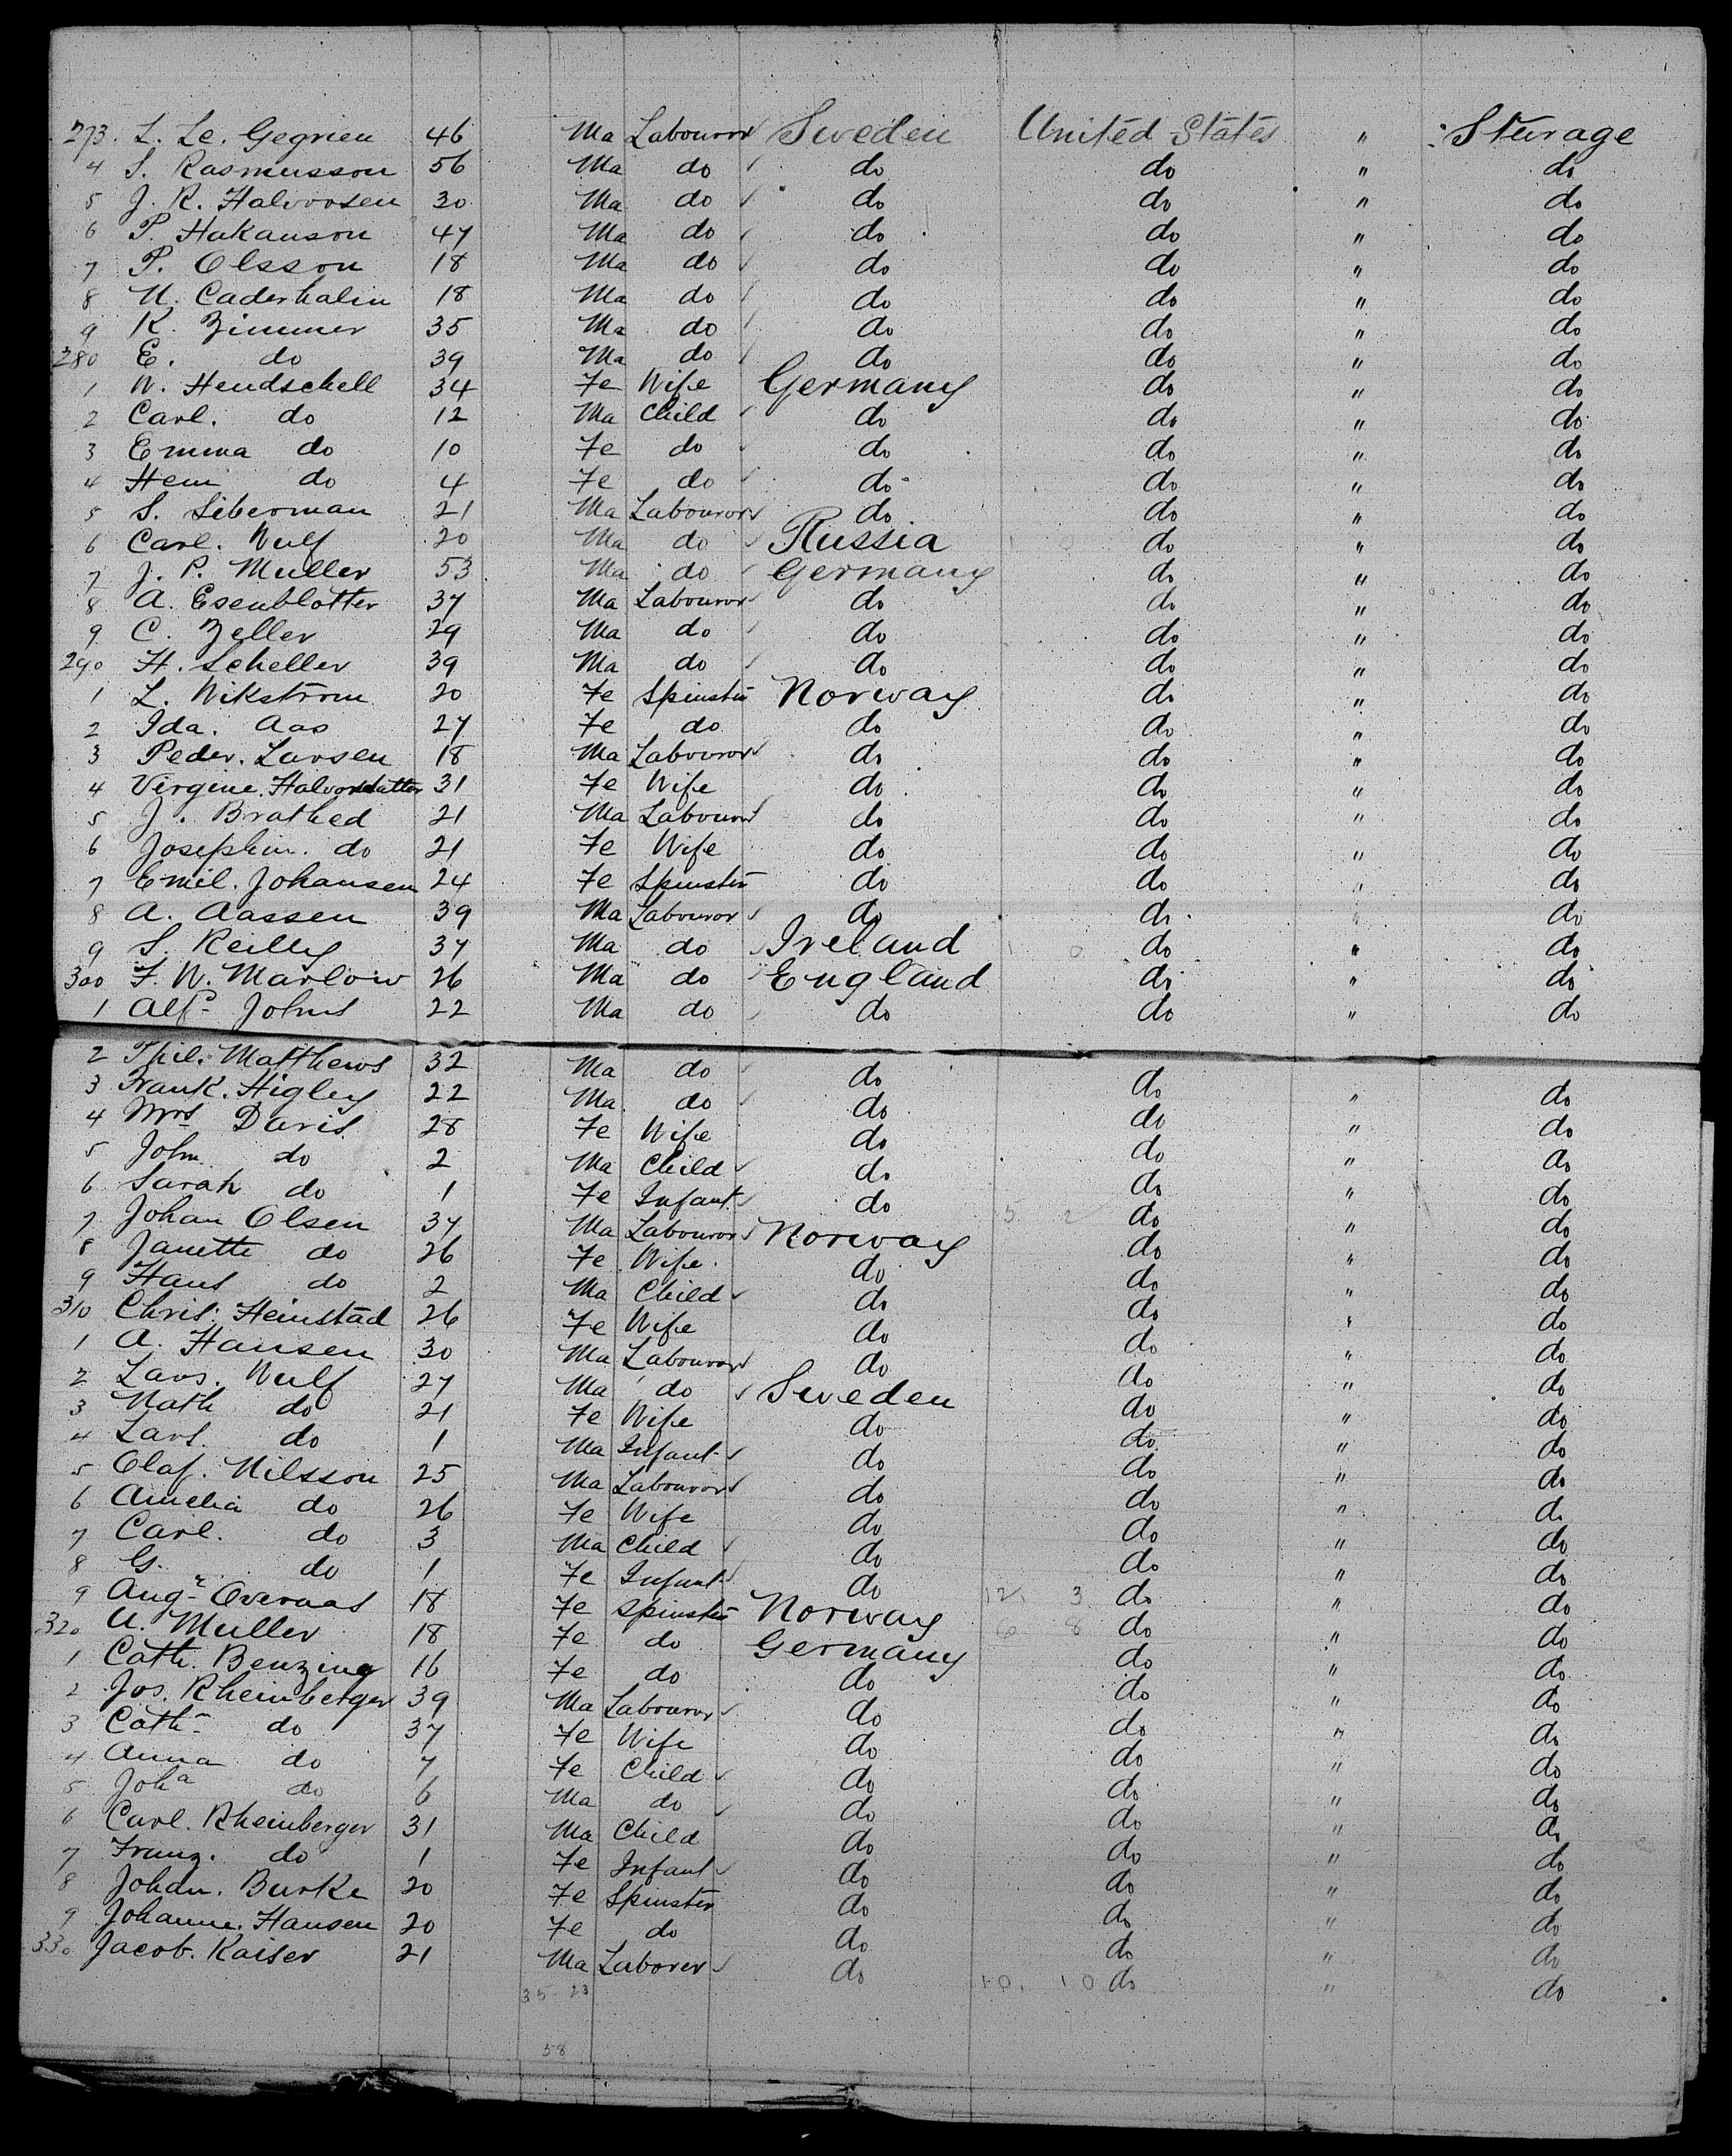 273. L. Le. Gegrien 46 Ma Labouror Sweden United States " Sturage
4 S. Rasmusson 56 Ma do do do " do
5 J. R. Halvorsen 30 Ma do do do " do
6 P. Hakanson 47 Ma do do do " do
7 P. Olsson 18 Ma do do do " do
8 N. Caderhalin 18 Ma do do do " do
9 K. Zimmer 35 Ma do do do " do
280 E. do 39 Ma do do do " do
1 W. Hendschell 34 Fe Wife Germany do " do
2 Carl. do 12 Ma Child do do " do
3 Emma do 10 Fe do do do " do
4 Hein do 4 Fe do do do " do
5 S. Siberman 21 Ma Labouror do do " do
6 Carl. Wulf 20 Ma do Russia do " do
7 J. P. Muller 53 Ma do Germany do " do
8 A. Esenblatter 37 Ma Labouror do do " do
9 C. Zeller 29 Ma do do do " do
290 H. Scheller 39 Ma do do do " do
1 L. Wikstrom 20 Fe Spinster Norway do " do
2 Ida. Aas 27 Fe do do do " do
3 Peder. Larsen 18 Ma Labouror do do " do
4 Virgine. 31 Fe Wife do do " do
5 J. Brathed 21 Ma Labouror do do " do
6 Josephin. do 21 Fe Wife do do " do
7 Emil. Johansen 24 Fe Spinster do do " do
8 A. Aassen 39 Ma Labouror do do " do
9 S. Reilly 37 Ma do Ireland do " do
300 F. W. Marlow 26 Ma do England do " do
1 Alf. Johns 22 Ma do do do " do
2 Matthews 32 Ma do do do " do
3 Frank. Higley 22 Ma do do do " do
4 Mrs Davis 28 Fe Wife do do " do
5 John do 2 Ma Child do do " do
6 Sarah do 1 Fe Infant do 5 2 do " do
7 Johan Olsen 37 Ma Labouror Norway do " do
8 Janette do 26 Fe Wife do do " do
9 Hans do 2 Ma Child do do " do
310 Chris. Heinstad 26 Fe Wife do do " do
1 A. Hansen 30 Ma Labouror do do " do
2 Lars. Wulf 27 Ma do Sweden do " do
3 Math do 21 Fe Wife do do " do
4 Lars. do 1 Ma Infant do do " do
5 Olaf. Nilsson 25 Ma Labouror do do " do
6 Amelia do 26 Fe Wife do do " do
7 Carl. do 3 Ma Child do do " do
8 G. do 1 Fe Infant do 12 3 do " do
9 Overaas 18 Fe Spinster Norway 6 8 do " do
320 A. Muller 18 Fe do Germany do " do
1 Cath. Benzing 16 Fe do do do " do
2 Jos. Rheinberger 39 Ma Labouror do do " do
3 Cath. do 37 Fe Wife do do " do
4 Anna do 7 Fe Child do do " do
5 Joha do 6 Ma do do do " do
6 Carl. Rheinberger 31 Ma Child do do " do
7 Franz. do 1 Fe Infant do do " do
8 Johan. Burke 20 Fe Spinster do do " do
9 Johanne. Hansen 20 Fe do do do " do
330 Jacob. Kaiser 21 Ma Laborer do 10. 10 do " do
35 23
58